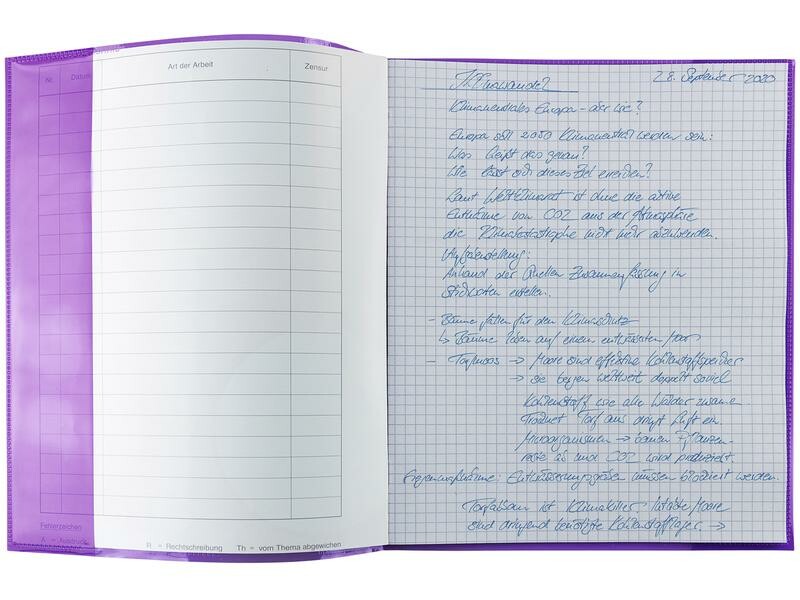 Nr. Datum Art der Arbeit Zensur
Fehlerzeichen
A = Ausdruck R = Rechtschreibung Th = vom Thema abgewichen
Klimawandel 28. September 2020
Klimaneutrales Europa - aber wie?
Europa soll 2050 Klimaneutral werden sein:
Was heißt das genau?
Wie lässt sich dieses Ziel erreichen?
Laut Weltklimarat ist ohne die aktive
Entnahme von CO2 aus der Atmosphäre
die Klimakatastrophe nicht mehr abzuwenden.
Aufgabenstellung:
Anhand der Quellen Zusammenfassung in
Stichworten erstellen.
- Bäume fällen für den Klimaschutz
↳ Bäume leben auf einem entwässerten Moor
- Torfmoos → Moore sind effektive Kohlenstoffspeicher
→ sie bergen weltweit doppelt soviel
Kohlenstoff wie alle Wälder zusamme
Torf aus dringt Luft ein
Mikroorganismen → bauen Pflanzen-
reste ab und CO2 wird produziert.
Entwässerungsgräben müssen blockiert werden.
Torfabbau ist Klimakiller Intakte Moore
sind dringend benötigte Kohlenstofflager →